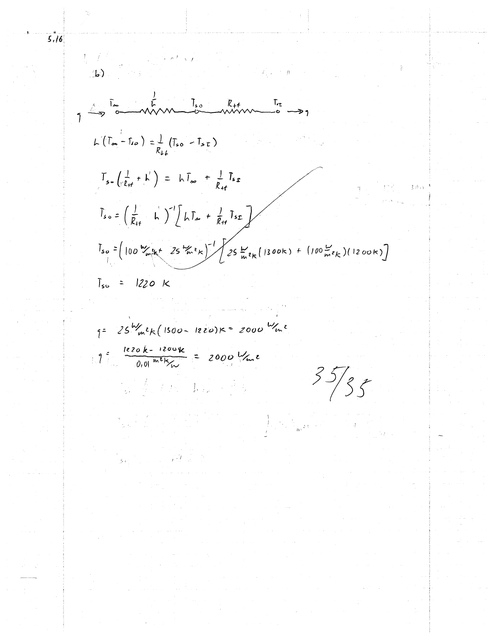 5.16
b)
q → T∞ 1/h Tso R"tf Tsi → q
h(T∞ - Tso) = 1/R"tf (Tso - Tsi)
Tso (1/R"tf + h) = hT∞ + 1/R"tf Tsi
Tso = (1/R"tf h)^-1 [hT∞ + 1/R"tf Tsi]
Tso = (100 W/m²K + 25 W/m²K)^-1 [25 W/m²K (1300K) + (100 W/m²K)(1200K)]
Tso = 1220 K
q = 25 W/m²K (1300 - 1220)K = 2000 W/m²
q = 1220K - 1200K / 0.01 m²K/W = 2000 W/m²
35/35